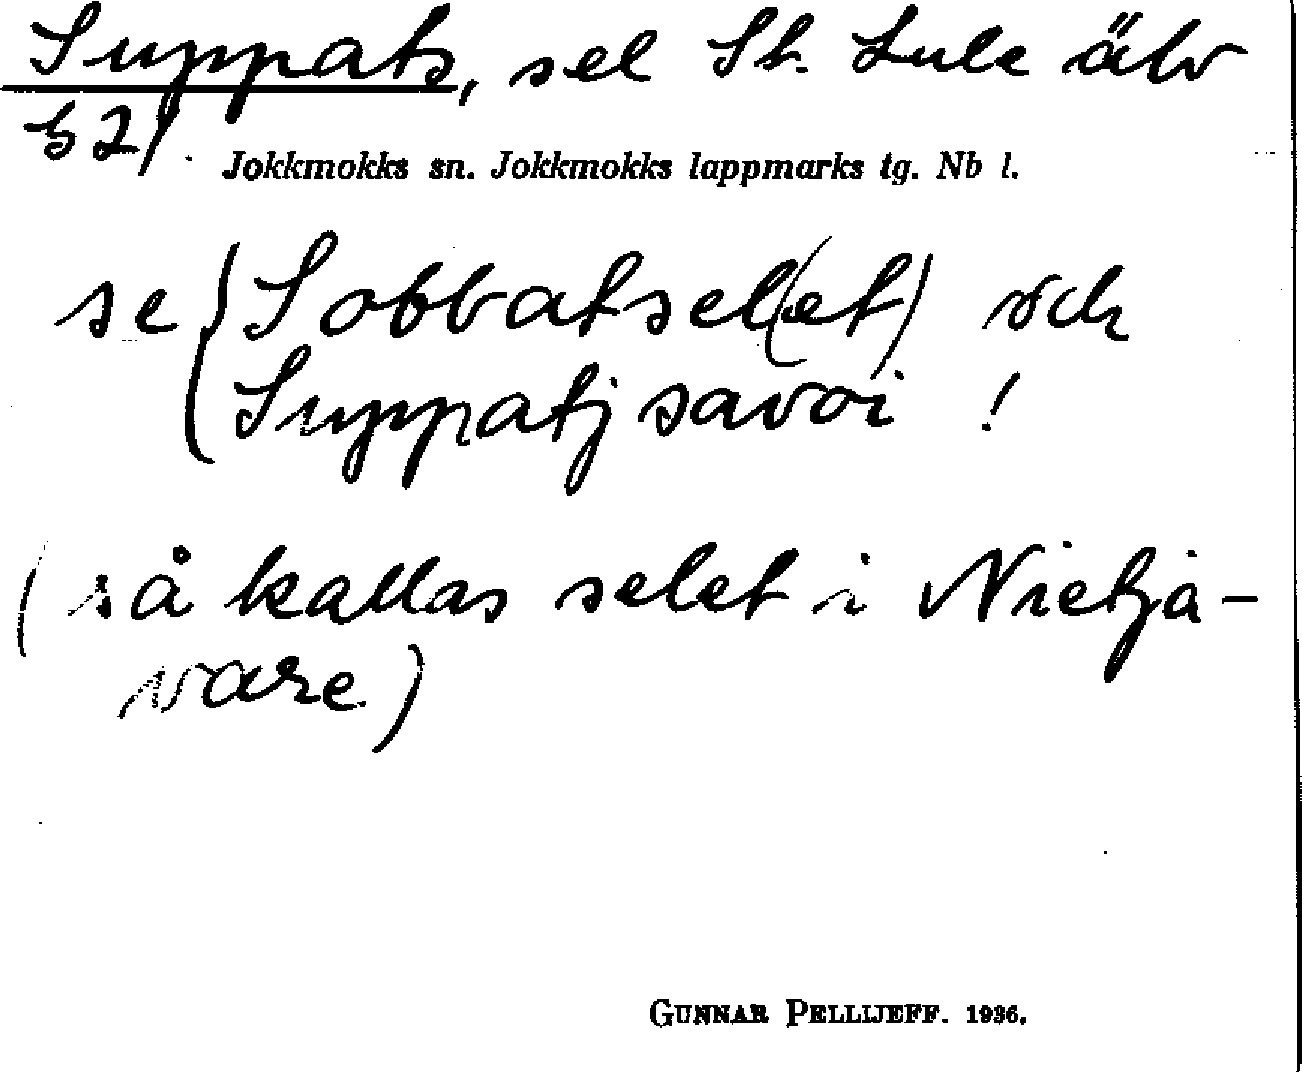 Suppats, sel St. Lule älv
52/.
Jokkmokks sn. Jokkmokks lappmarks tg. Nb l.
se { Sobbatsel(et) och
Suppatjsavoi !
(så kallas selet i Nietja-
vare)
GUNNAR PELLIJEFF. 1936.